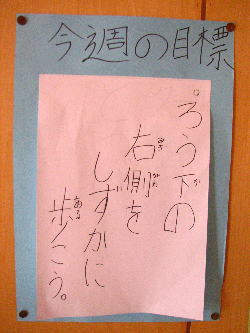 今週の目標
ろう下の
右側を
しずかに
歩こう。